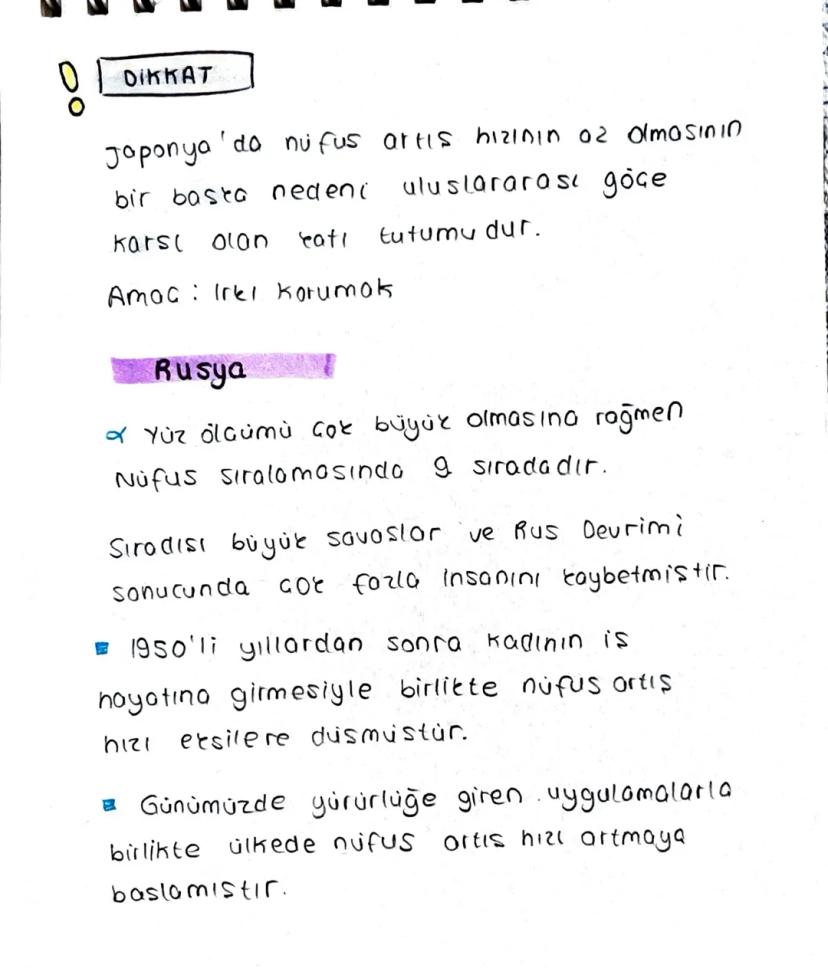 DİKKAT
Japonya'da nüfus artış hızının az olmasının
bir başka nedeni uluslararası göçe
karşı olan katı tutumudur.
Amaç : Irkı korumak
Rusya
Yüz ölçümü çok büyük olmasına rağmen
Nüfus sıralamasında 9 sıradadır.
Sıradışı büyük savaşlar ve Rus Devrimi
sonucunda çok fazla insanını kaybetmiştir.
1950'li yıllardan sonra kadının iş
hayatına girmesiyle birlikte nüfus artış
hızı eksilere düşmüştür.
Günümüzde yürürlüğe giren uygulamalarla
birlikte ülkede nüfus artış hızı artmaya
başlamıştır.